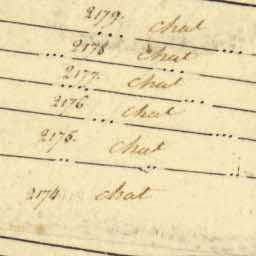 2179. chat
2178 chat
2177. chat
2176. chat
2175. chat
2174 chat